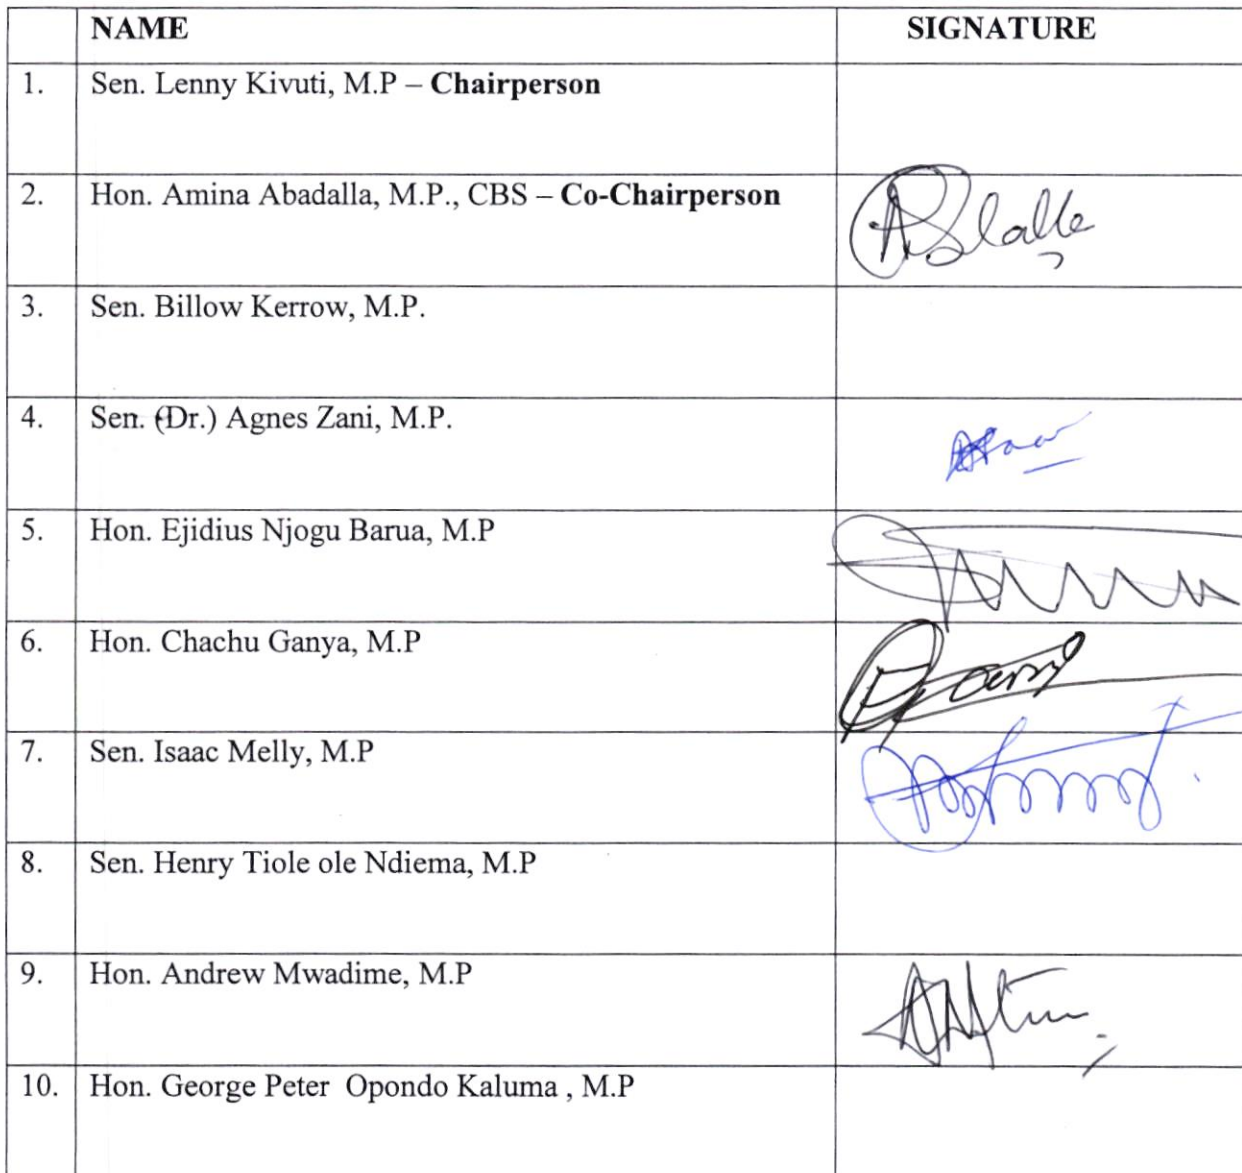 NAME SIGNATURE
1. Sen. Lenny Kivuti, M.P – Chairperson
2. Hon. Amina Abadalla, M.P., CBS – Co-Chairperson
3. Sen. Billow Kerrow, M.P.
4. Sen. (Dr.) Agnes Zani, M.P.
5. Hon. Ejidius Njogu Barua, M.P
6. Hon. Chachu Ganya, M.P
7. Sen. Isaac Melly, M.P
8. Sen. Henry Tiole ole Ndiema, M.P
9. Hon. Andrew Mwadime, M.P
10. Hon. George Peter Opondo Kaluma , M.P